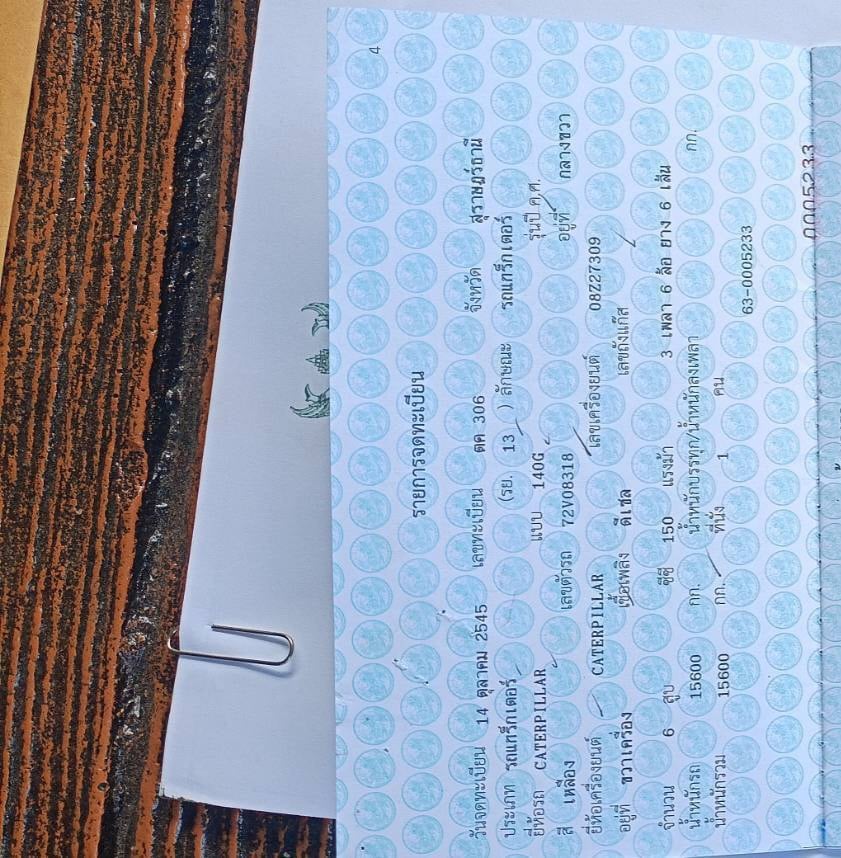 4
รายการจดทะเบียน
วันจดทะเบียน 14 ตุลาคม 2545 เลขทะเบียน ตค 306 จังหวัด สุราษฎร์ธานี
ประเภท รถแทร็กเตอร์ (รย. 13 ) ลักษณะ รถแทร็กเตอร์
ยี่ห้อรถ CATERPILLAR แบบ 140G รุ่นปี ค.ศ.
สี เหลือง เลขตัวรถ 72V08318 อยู่ที่ กลางขวา
ยี่ห้อเครื่องยนต์ CATERPILLAR เลขเครื่องยนต์ 08Z27309
อยู่ที่ ขวาเครื่อง เชื้อเพลิง ดีเซล เลขถังแก๊ส
จำนวน 6 สูบ ซีซี 150 แรงม้า 3 เพลา 6 ล้อ ยาง 6 เส้น
น้ำหนักรถ 15600 กก. น้ำหนักบรรทุก/น้ำหนักลงเพลา กก.
น้ำหนักรวม 15600 กก. ที่นั่ง 1 คน
63-0005233
0005233